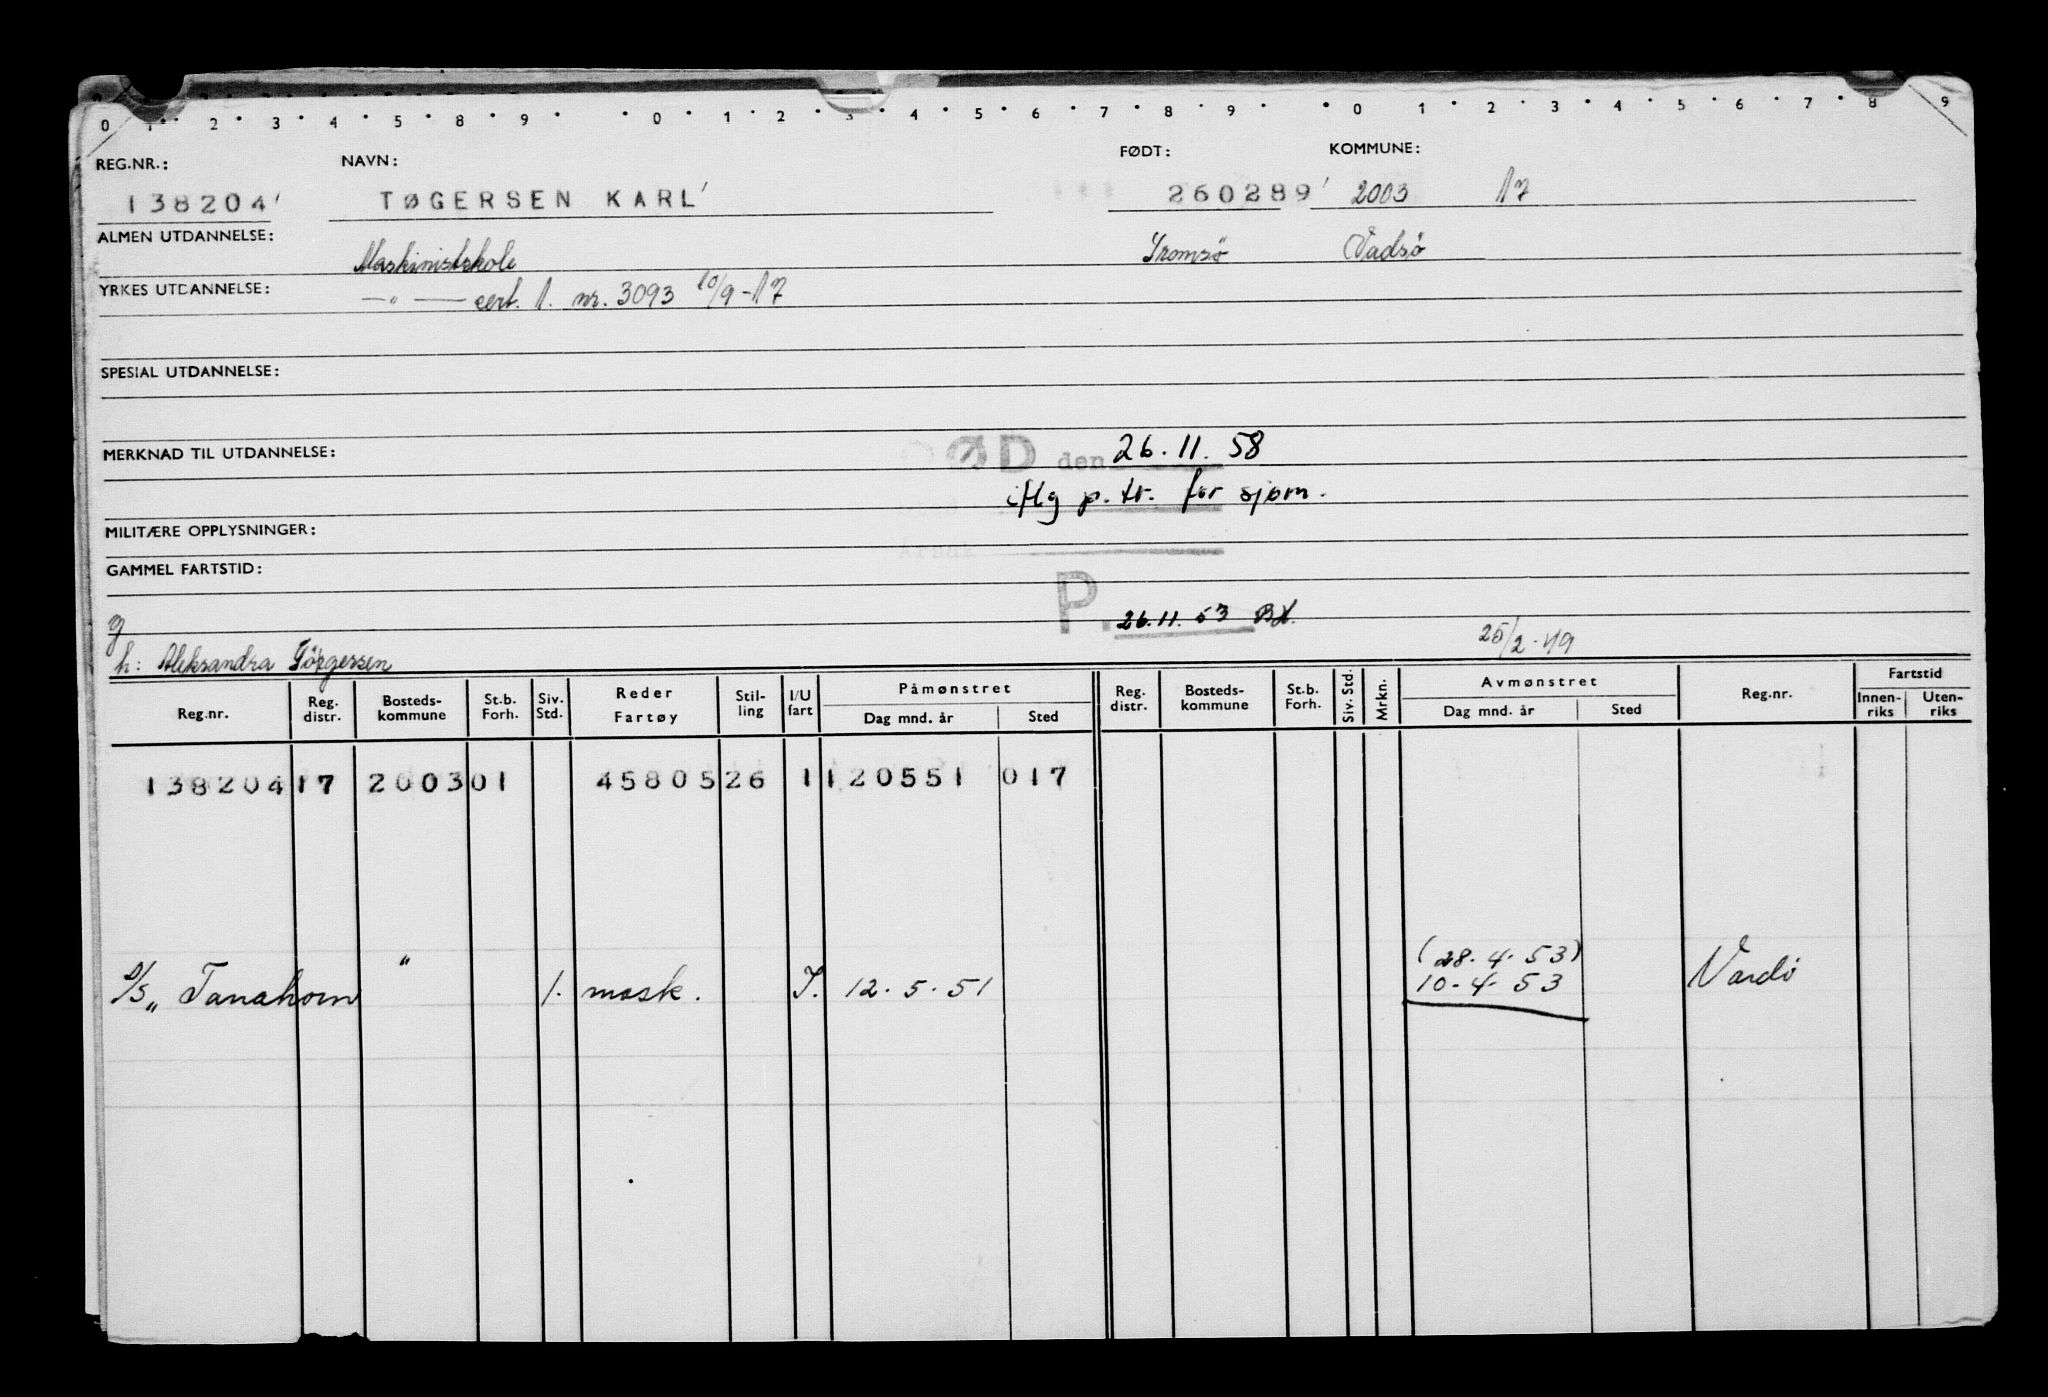 0 1 2 3 4 5 6 7 8 9 0 1 2 3 4 5 6 7 8 9 0 1 2 3 4 5 6 7 8 9
REG.NR.: NAVN: FØDT: KOMMUNE:
138204 TØGERSEN KARL 260289 2003 17
ALMEN UTDANNELSE: Maskinistskole Tromsö Vadsö
YRKES UTDANNELSE: —"— cert. 1. nr. 3093 10/9-17
SPESIAL UTDANNELSE:
MERKNAD TIL UTDANNELSE: DØD den 26.11.58
iflg p. tr. for sjøm.
MILITÆRE OPPLYSNINGER:
GAMMEL FARTSTID:
P. 26.11.53
g 25/2-49
h: Aleksandra Törgessen
Reg.nr. Reg. distr. Bosteds-kommune St.b. Forh. Siv. Std. Reder Fartøy Stil-ling I/U fart Påmønstret Dag mnd. år Sted Reg. distr. Bosteds-kommune St.b. Forh. Siv. Std. Mrkn. Avmønstret Dag mnd. år Sted Reg.nr. Fartstid Innen-riks Uten-riks
138204 17 2003 01 45805 26 1 120551 017
(28.4.53)
D/S „ Tanahorn " 1. mask. I. 12.5.51 10-4-53 Vardö